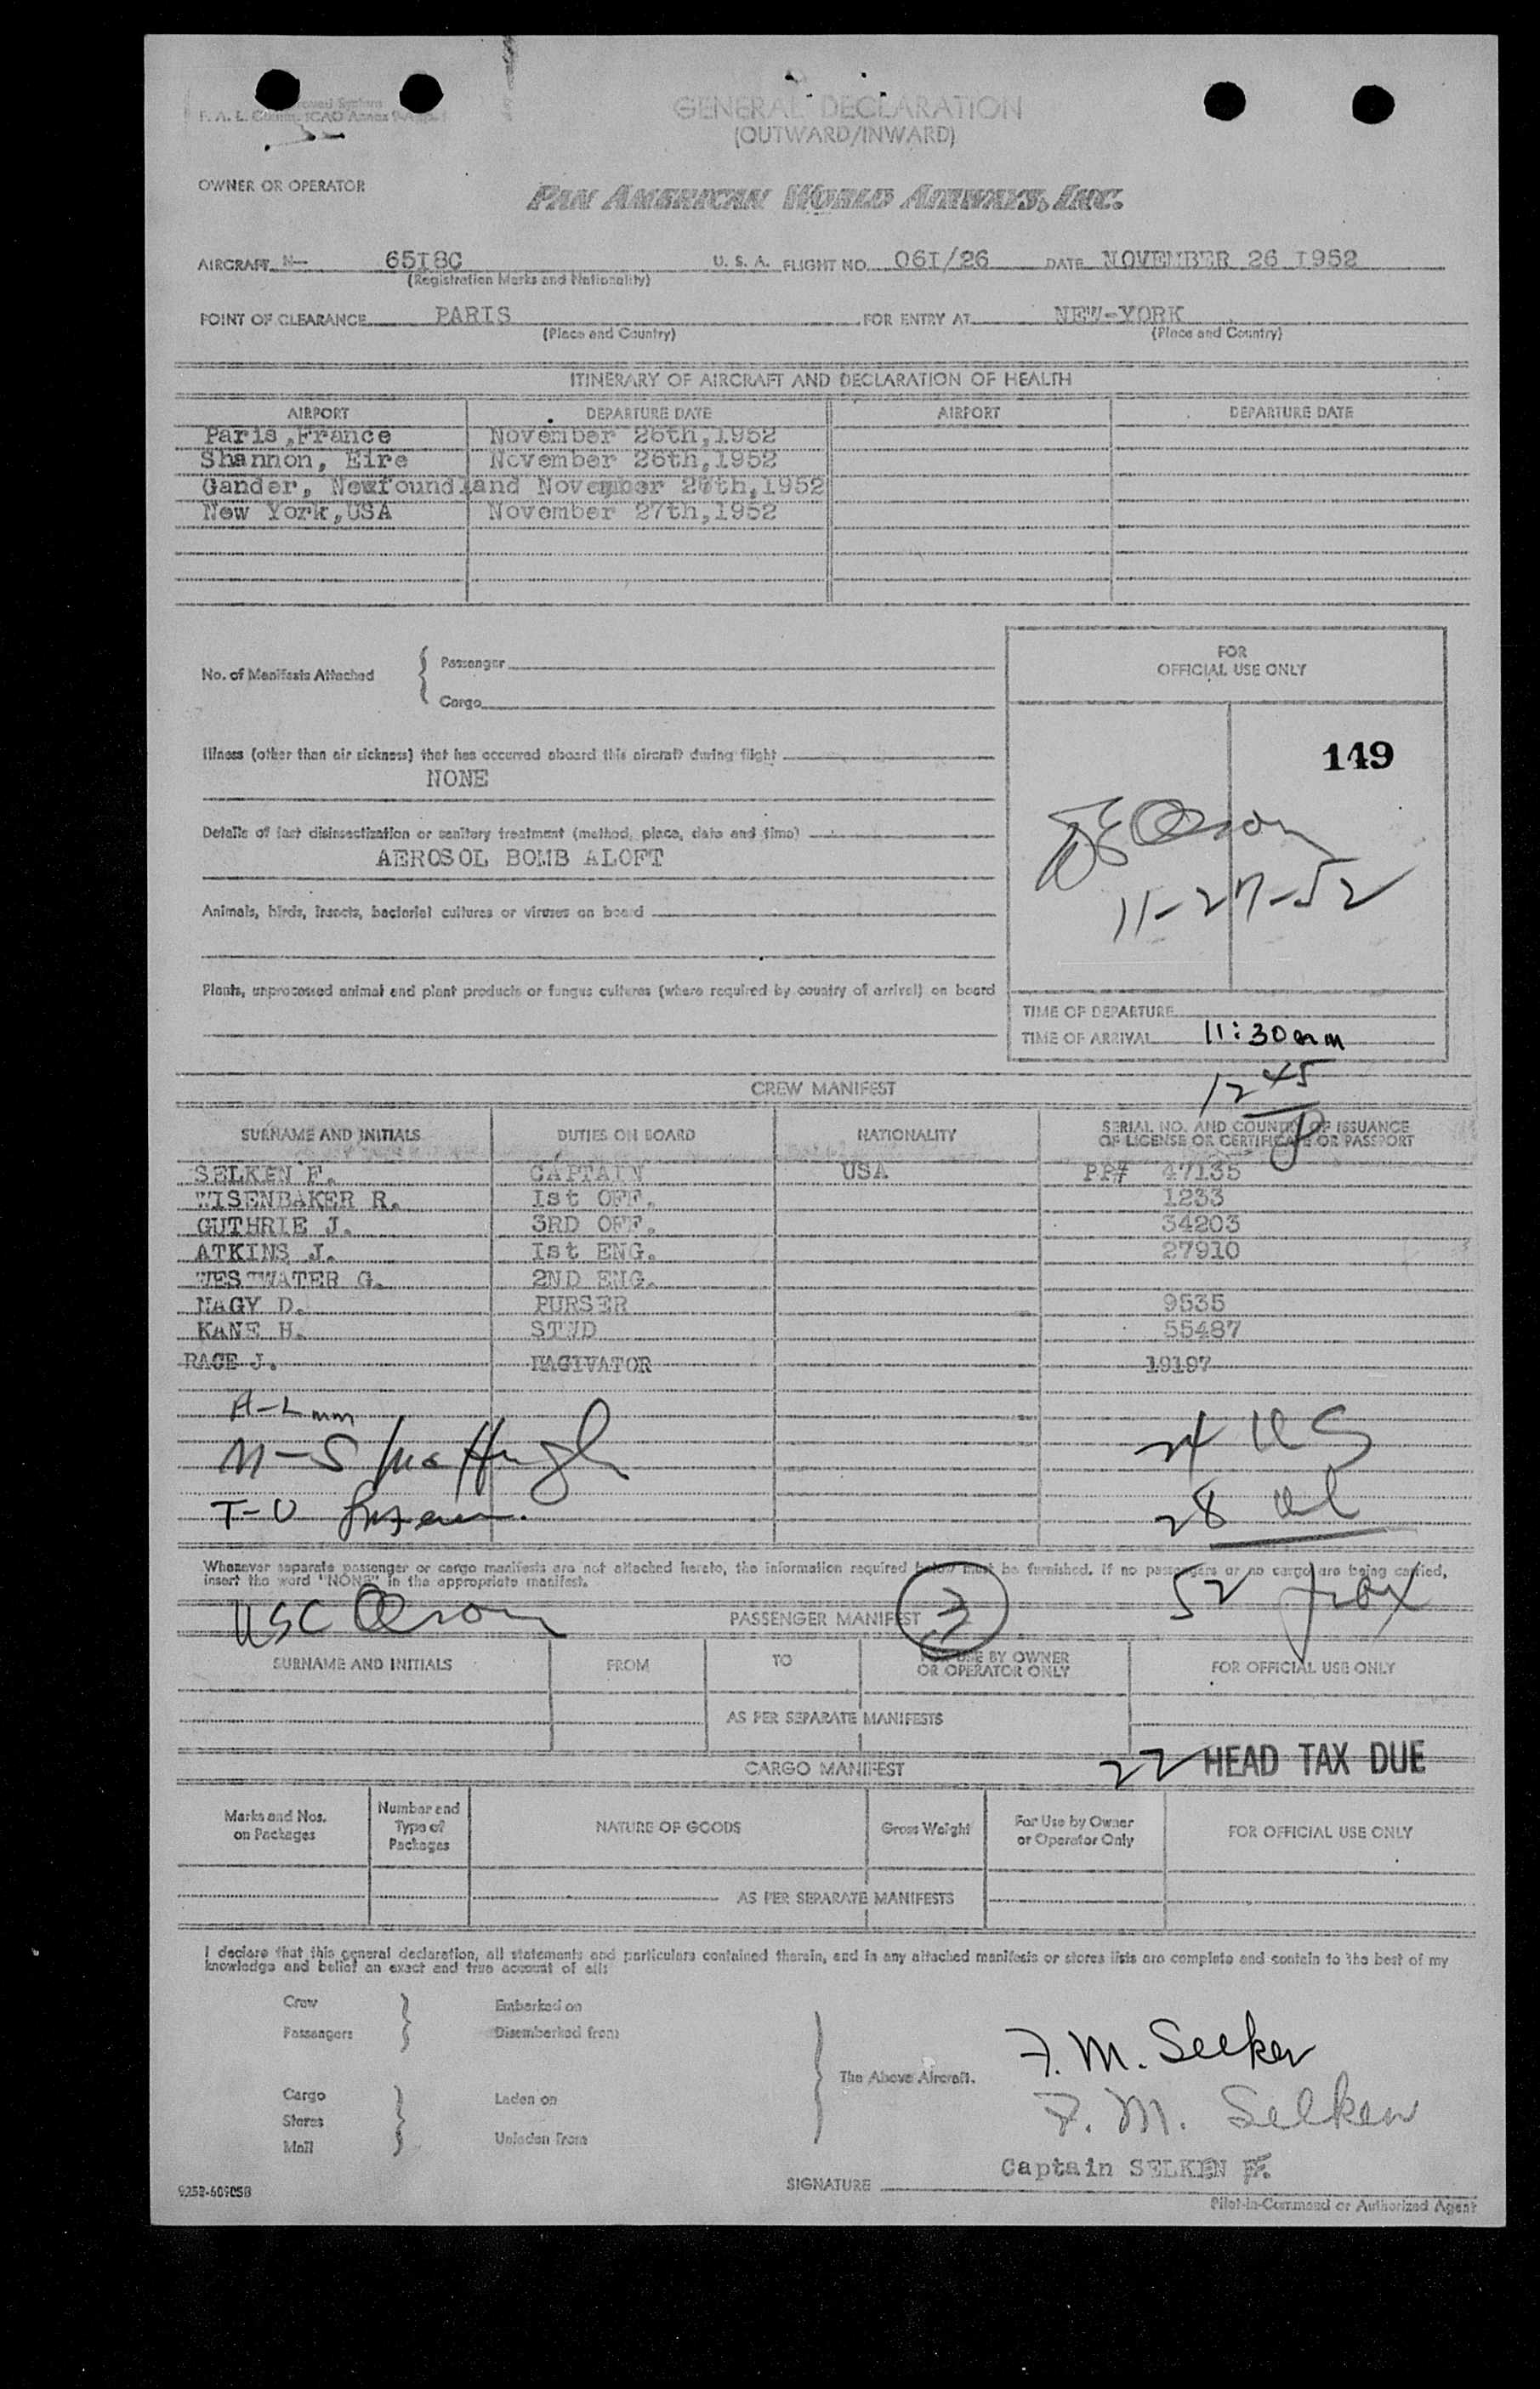 F. A. L. Comm. ICAO Annex 9-App. 1
GENERAL DECLARATION
(OUTWARD/INWARD)
OWNER OR OPERATOR
PAN AMERICAN WORLD AIRWAYS, INC.
AIRCRAFT N- 65I8C U. S. A. FLIGHT NO. 06I/26 DATE NOVEMBER 26 I952
(Registration Marks and Nationality)
POINT OF CLEARANCE PARIS FOR ENTRY AT NEW-YORK
(Place and Country) (Place and Country)
ITINERARY OF AIRCRAFT AND DECLARATION OF HEALTH
AIRPORT DEPARTURE DATE AIRPORT DEPARTURE DATE
Paris,France November 26th,1952
Shannon, Eire November 26th,1952
Gander, Newfoundland November 27th,1952
New York,USA November 27th,1952
FOR
OFFICIAL USE ONLY
No. of Manifests Attached { Passenger
Cargo
149
Illness (other than air sickness) that has occurred aboard this aircraft during flight
NONE
Details of last disinsectization or sanitary treatment (method, place, date and time)
AEROSOL BOMB ALOFT
Olson
11-27-52
Animals, birds, insects, bacterial cultures or viruses on board
Plants, unprocessed animal and plant products or fungus cultures (where required by country of arrival) on board
TIME OF DEPARTURE
TIME OF ARRIVAL 11:30 am
12 45
CREW MANIFEST
SURNAME AND INITIALS DUTIES ON BOARD NATIONALITY SERIAL NO. AND COUNTRY OF ISSUANCE
OF LICENSE OR CERTIFICATE OR PASSPORT
SELKEN F. CAPTAIN USA PP# 47135
WISENBAKER R. Ist OFF. 1233
GUTHRIE J. 3RD OFF. 34203
ATKINS J. Ist ENG. 27910
WESTWATER G. 2ND ENG.
NAGY D. PURSER 9535
KANE H. STWD 55487
RACE J. NAGIVATOR 19197
A-L
M-S McHugh 24 US
T-U 28 al
Whenever separate passenger or cargo manifests are not attached hereto, the information required below must be furnished. If no passengers or no cargo are being carried,
insert the word "NONE" in the appropriate manifest.
USC Olson 52 pax
PASSENGER MANIFEST
SURNAME AND INITIALS FROM TO FOR USE BY OWNER
OR OPERATOR ONLY FOR OFFICIAL USE ONLY
AS PER SEPARATE MANIFESTS
22 HEAD TAX DUE
CARGO MANIFEST
Marks and Nos.
on Packages Number and
Type of
Packages NATURE OF GOODS Gross Weight For Use by Owner
or Operator Only FOR OFFICIAL USE ONLY
AS PER SEPARATE MANIFESTS
I declare that this general declaration, all statements and particulars contained therein, and in any attached manifests or stores lists are complete and contain to the best of my
knowledge and belief an exact and true account of all:
Crew Embarked on
Passengers Disembarked from
F. M. Selken
The Above Aircraft.
Cargo Laden on
F. M. Selken
Stores
Mail Unladen from
Captain SELKEN F.
SIGNATURE
925B-609058
Pilot-in-Command or Authorized Agent